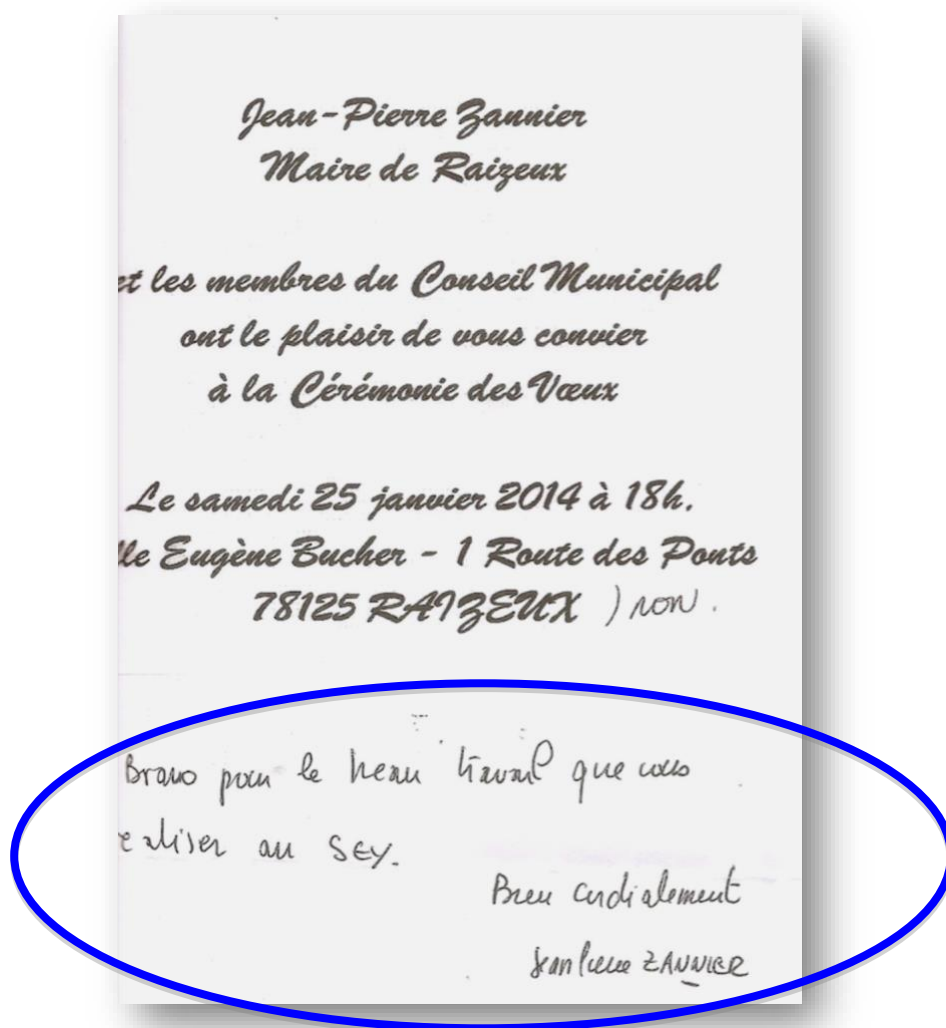 Jean-Pierre Zannier
Maire de Raizeux
et les membres du Conseil Municipal
ont le plaisir de vous convier
à la Cérémonie des Vœux
Le samedi 25 janvier 2014 à 18h.
lle Eugène Bucher - 1 Route des Ponts
78125 RAIZEUX ) non.
Bravo pour le beau travail que vous
ealiser au SEY.
Bien cordialement
Jean Pierre ZANNIER